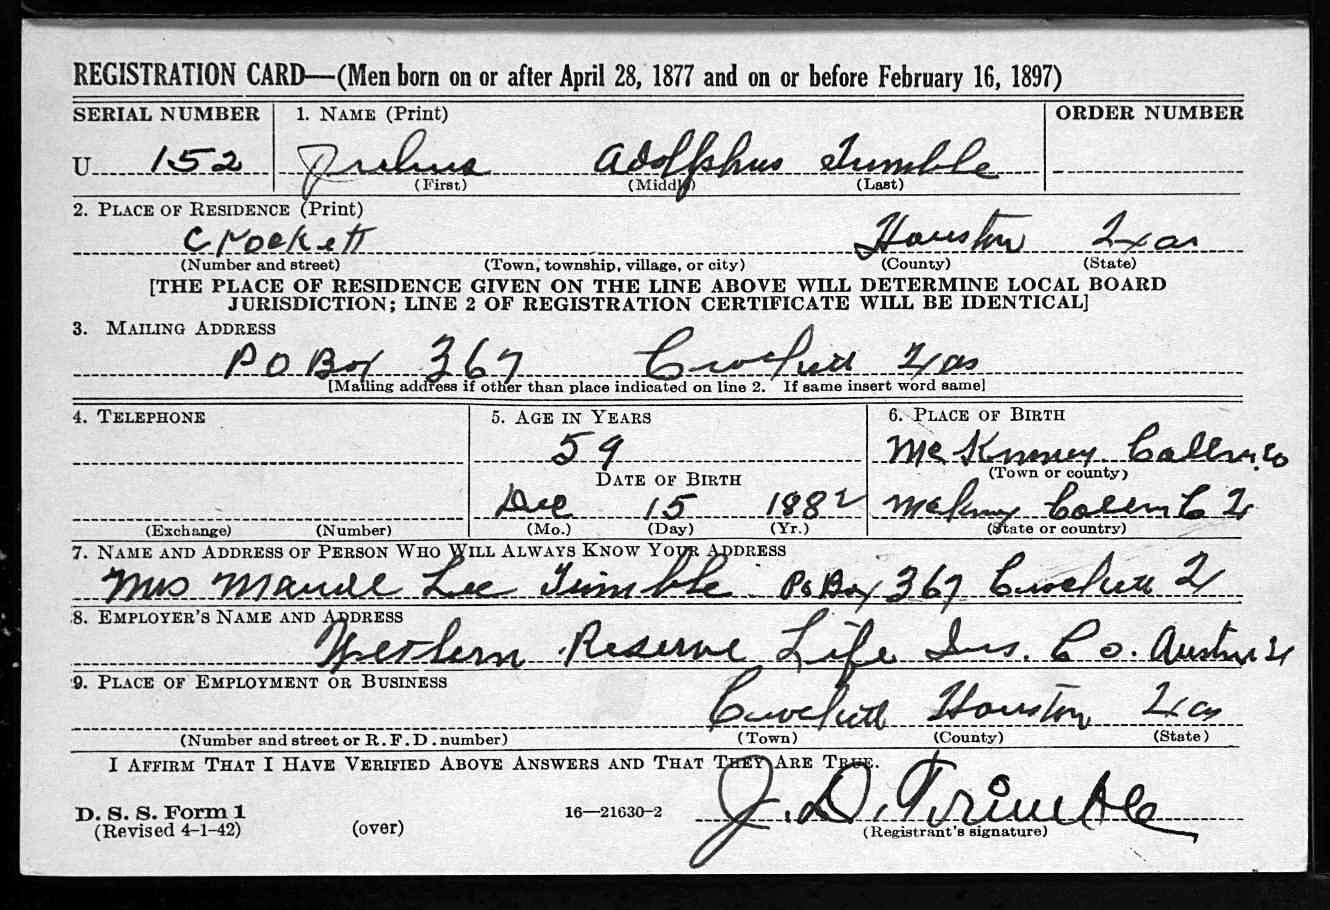 REGISTRATION CARD—(Men born on or after April 28, 1877 and on or before February 16, 1897)
SERIAL NUMBER 1. NAME (Print) ORDER NUMBER
U 152 Julius Adolphus Trimble
(First) (Middle) (Last)
2. PLACE OF RESIDENCE (Print)
Crockett Houston Texas
(Number and street) (Town, township, village, or city) (County) (State)
[THE PLACE OF RESIDENCE GIVEN ON THE LINE ABOVE WILL DETERMINE LOCAL BOARD
JURISDICTION; LINE 2 OF REGISTRATION CERTIFICATE WILL BE IDENTICAL]
3. MAILING ADDRESS
P O Box 367 Crockett Texas
[Mailing address if other than place indicated on line 2. If same insert word same]
4. TELEPHONE 5. AGE IN YEARS 6. PLACE OF BIRTH
59 McKinney Collin Co
DATE OF BIRTH (Town or county)
Dec 15 1882 McKinney Collin C
(Exchange) (Number) (Mo.) (Day) (Yr.) (State or country)
7. NAME AND ADDRESS OF PERSON WHO WILL ALWAYS KNOW YOUR ADDRESS
Mrs Maude Lee Trimble PO Box 367 Crockett
8. EMPLOYER'S NAME AND ADDRESS
Western Reserve Life Ins. Co. Austin
9. PLACE OF EMPLOYMENT OR BUSINESS
Crockett Houston Texas
(Number and street or R. F. D. number) (Town) (County) (State)
I AFFIRM THAT I HAVE VERIFIED ABOVE ANSWERS AND THAT THEY ARE TRUE.
D. S. S. Form 1
(Revised 4-1-42) (over) 16—21630-2 J. D. Trimble
(Registrant's signature)